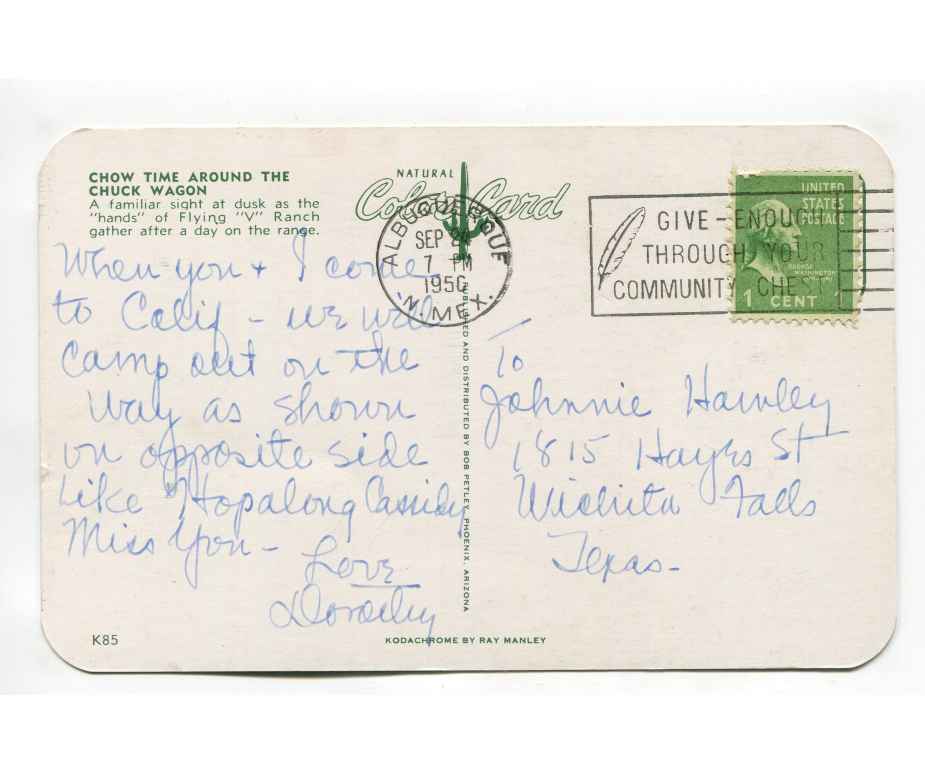 CHOW TIME AROUND THE
CHUCK WAGON
A familiar sight at dusk as the
"hands" of Flying "V" Ranch
gather after a day on the range.
NATURAL
Color Card
ALBUQUERQUE
SEP
7 PM
1950
N. MEX.
GIVE-ENOUGH
THROUGH YOUR
COMMUNITY CHEST
UNITED
STATES
POSTAGE
GEORGE
WASHINGTON
1 CENT 1
When you + I come
to Calif - we will
camp out on the
way as shown
on opposite side
Like "Hopalong Cassidy
Miss You -
Love
PUBLISHED AND DISTRIBUTED BY BOB PETLEY, PHOENIX, ARIZONA
To
Johnnie Hawley
1815 Hayes St
Wichita Falls
Texas-
K85
KODACHROME BY RAY MANLEY